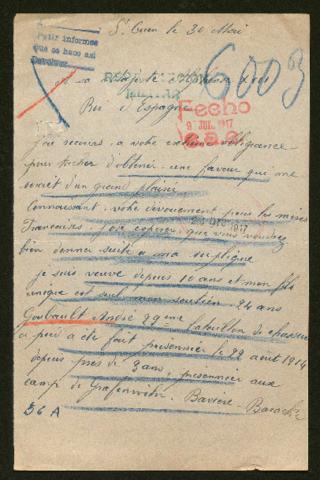 St Ouen le 30 Mai
Pedir informes
que se hace así
6003
a sa Majesté Alphonse XIII
Roi d'Espagne
Fecho
9 JUL. 1917
J'ai recours a votre extrême obligeance
pour tacher d'obtenir une faveur qui me
serait d'un grand plaisir
Connaissant votre dévouement pour les
Français j'ose espérer que vous voudrez
1917
bien donner suite a ma supplique
je suis veuve depuis 10 ans et mon fils
unique est seul mon soutien 24 ans
Goubault André 29 eme bataillon de chasseur
a pied a été fait prisonnier le 22 août 1914
depuis près de 3 ans prisonnier aux
camp de Grafenwohr Bavière Baracke
56 A